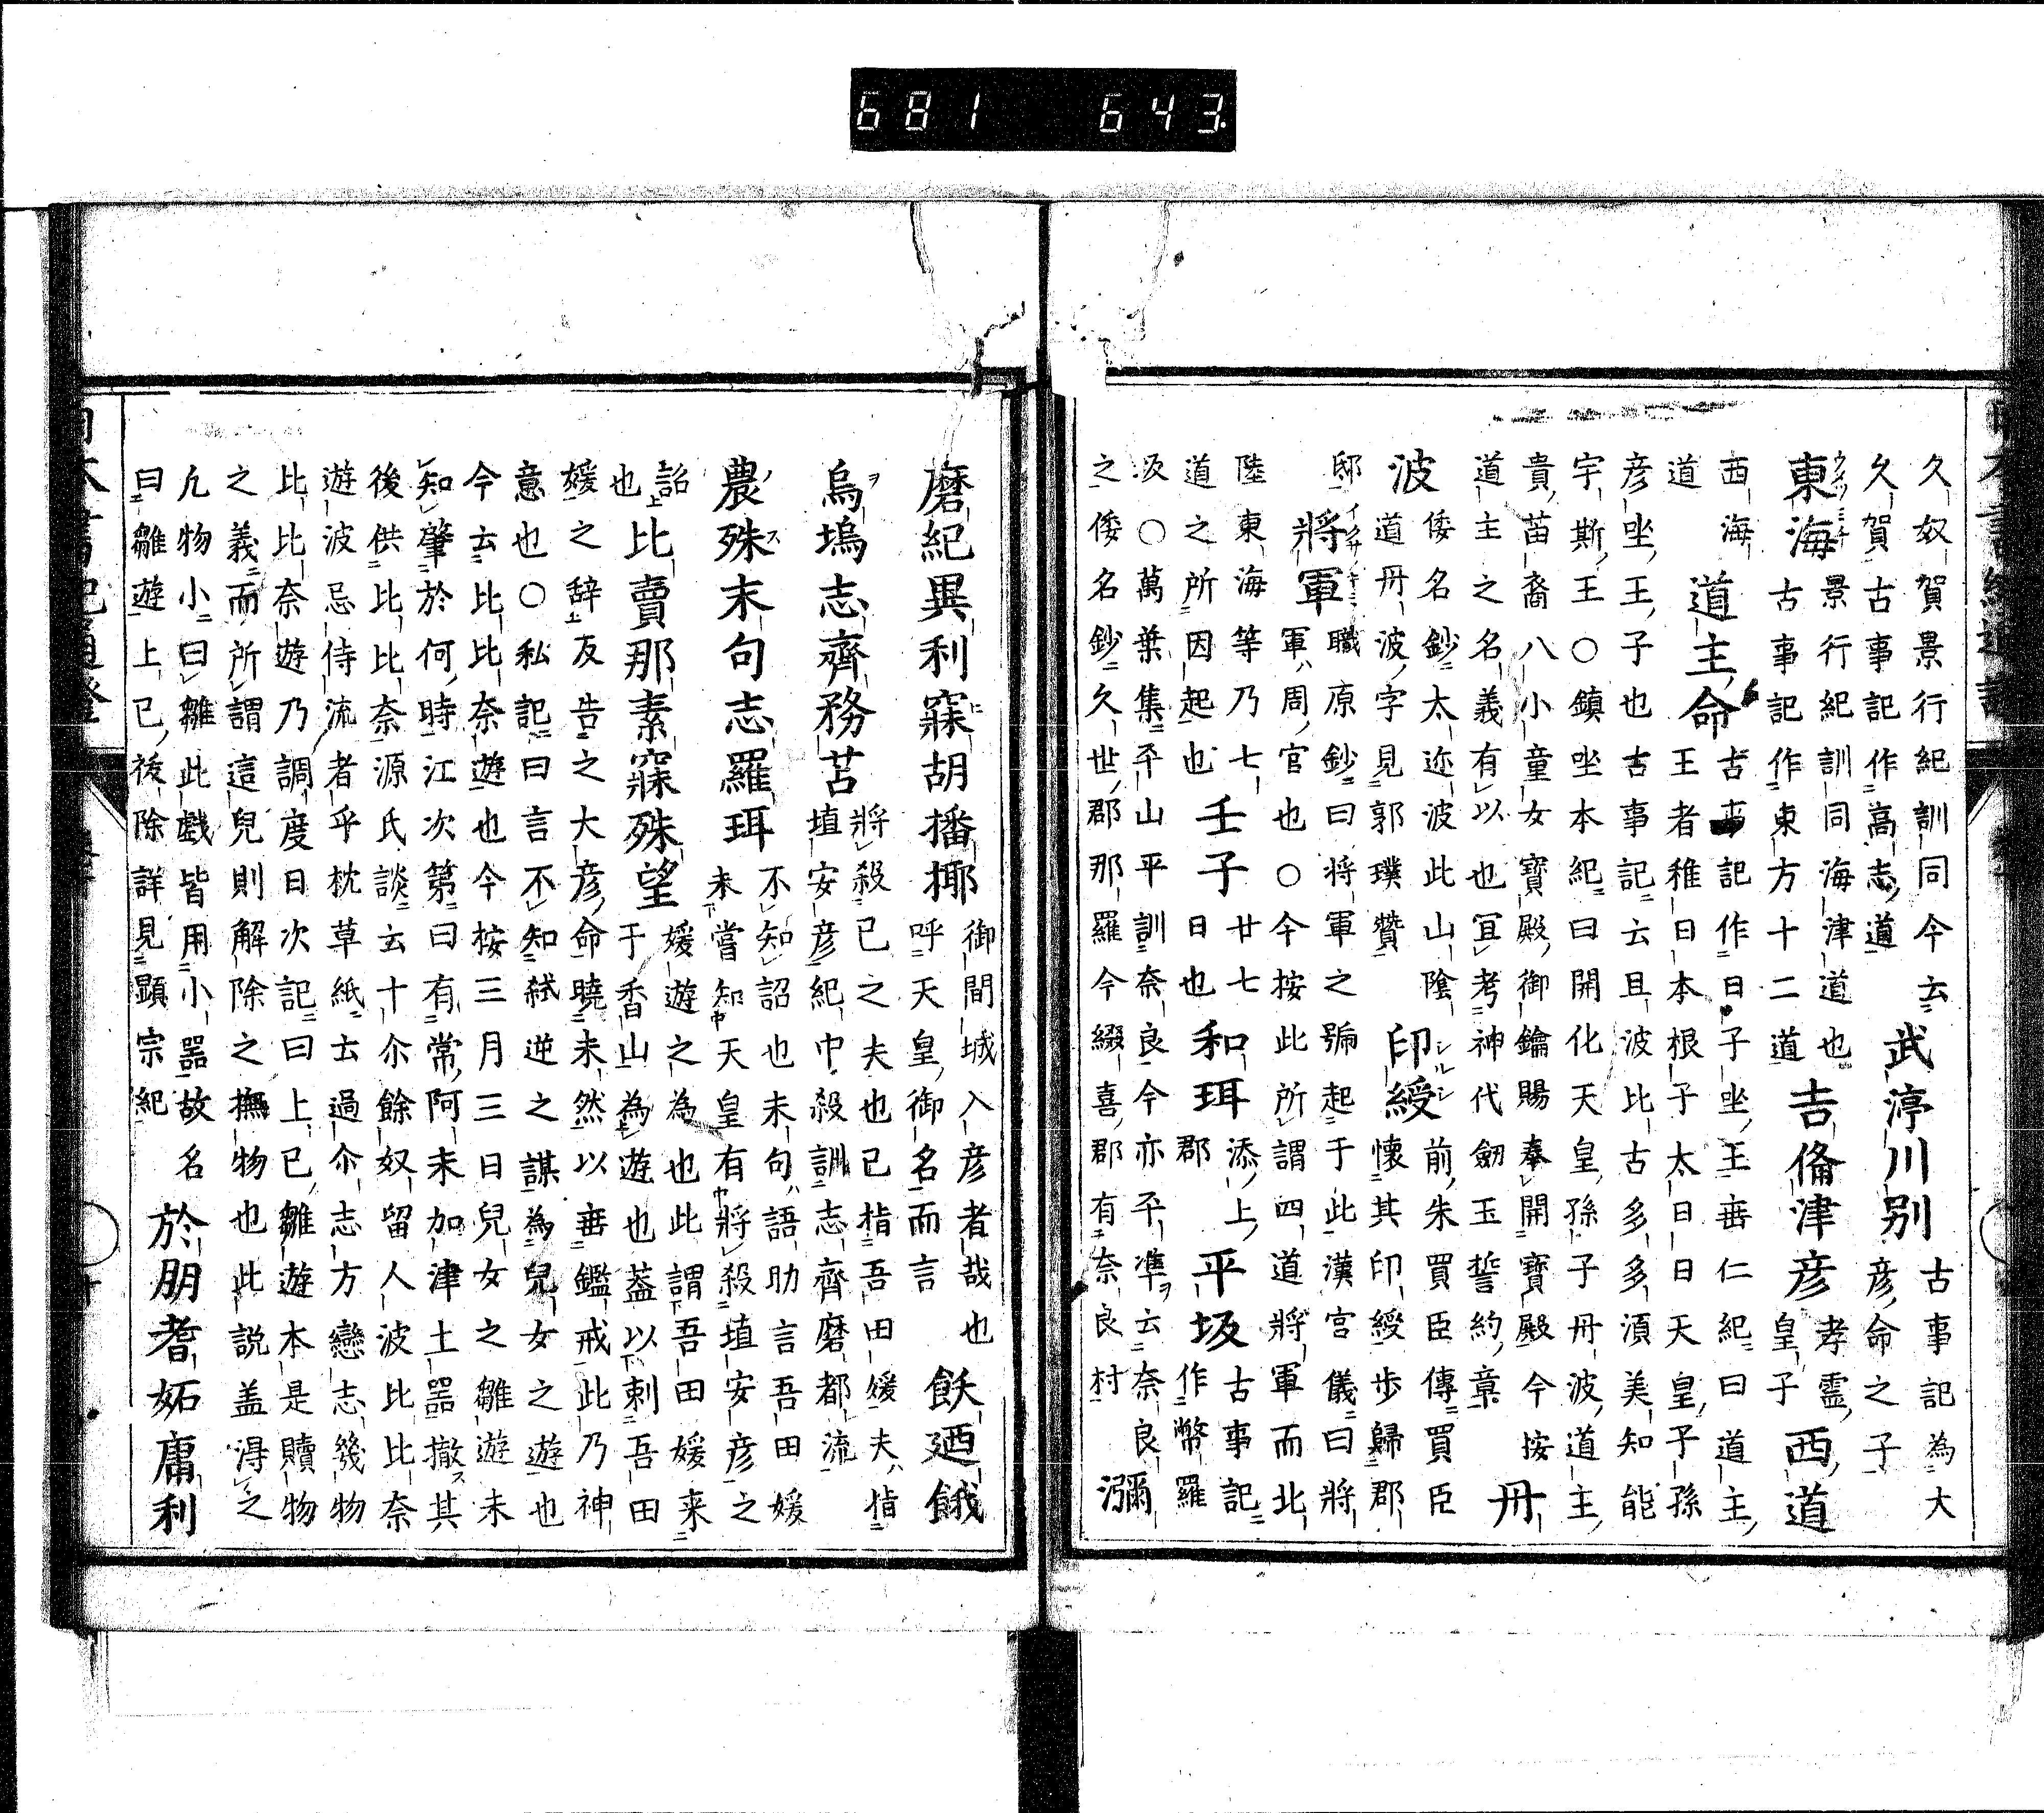 681 643
久奴賀景行紀訓同今云
久賀古事記作高志道
武渟川別
古事記為大
彦命之子
東海
景行紀訓同海津道也
古事記作東方十二道
吉備津彦
孝霊
皇子
西道
西海
道
道主命
古事記作日子坐王垂仁紀曰道主
王者稚日本根子太日日天皇子孫
彦坐王子也古事記云旦波比古多多須美知能
宇斯王○鎮坐本紀曰開化天皇孫子丹波道主
貴苗裔八小童女寶殿御鑰賜奉開寶殿今按
道主之名義有以也冝考神代劒玉誓約章
丹
波
倭名鈔太迩波此山陰
道丹波字見郭璞贊
印綬
前朱買臣傳買臣
懐其印綬歩歸郡
邸
將軍
職原鈔曰将軍之號起于此漢宮儀曰將
軍周官也○今按此所謂四道將軍而北
陸東海等乃七
道之所因起也
壬子
廿七
日也
和珥
添上
郡
平坂
古事記
作幣羅
坂○萬葉集平山平訓奈良今亦平準云奈良
之倭名鈔久世郡那羅今綴喜郡有奈良村
瀰
磨紀異利寐胡播揶
御間城入彦者哉也
呼天皇御名而言
飫廼餓
烏塢志齊務苫
將殺己之夫也己指吾田媛夫指
埴安彦紀中殺訓志齊磨都流
農殊末句志羅珥
不知詔也末句語助言吾田媛
未嘗知天皇有將殺埴安彦之
詔
也
比賣那素寐殊望
媛遊之為也此謂吾田媛来
于香山為遊也蓋以刺吾田
媛之辞反告之大彦命曉未然以垂鑑戒此乃神
意也○私記曰言不知弑逆之謀為兒女之遊也
今云比比奈遊也今按三月三日兒女之雛遊未
知肇於何時江次第曰有常阿末加津土器撤其
後供比比奈源氏談云十尒餘奴留人波比比奈
遊波忌侍流者乎枕草紙云過尒志方戀志幾物
比比奈遊乃調度日次記曰上巳雛遊本是贖物
之義而所謂這兒則解除之撫物也此説盖淂之
凢物小曰雛此戲皆用小器故名
曰雛遊上巳後除詳見顕宗紀
於朋耆妬庸利